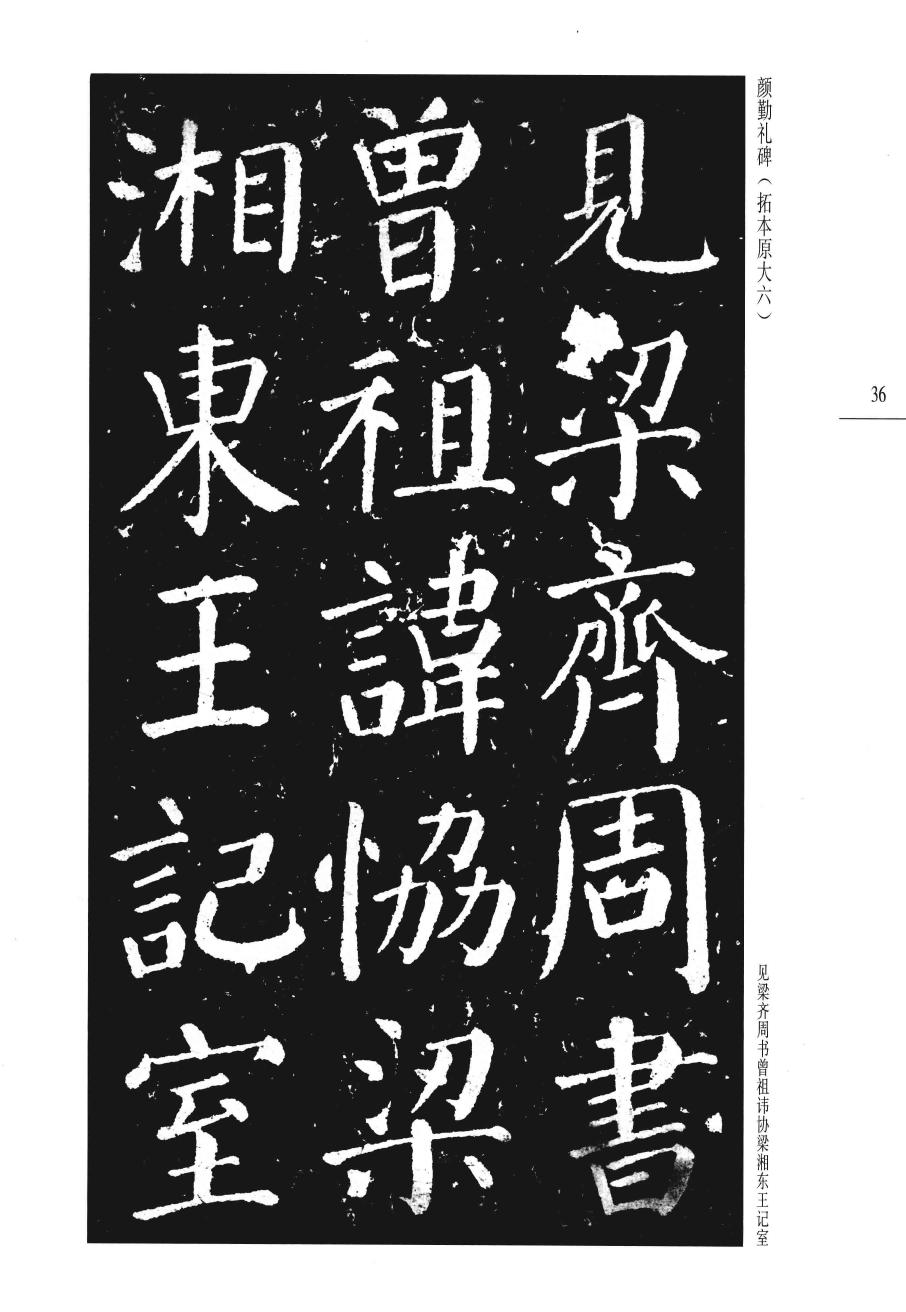 颜勤礼碑（拓本原大六）
36
見梁齊周書
曾祖諱恊梁
湘東王記室
见梁齐周书曾祖讳协梁湘东王记室